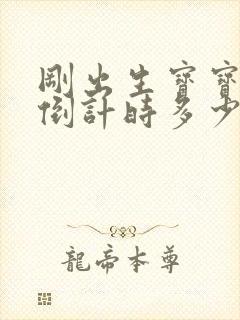 剛出生寶寶
倒計時多少
龍帝本尊